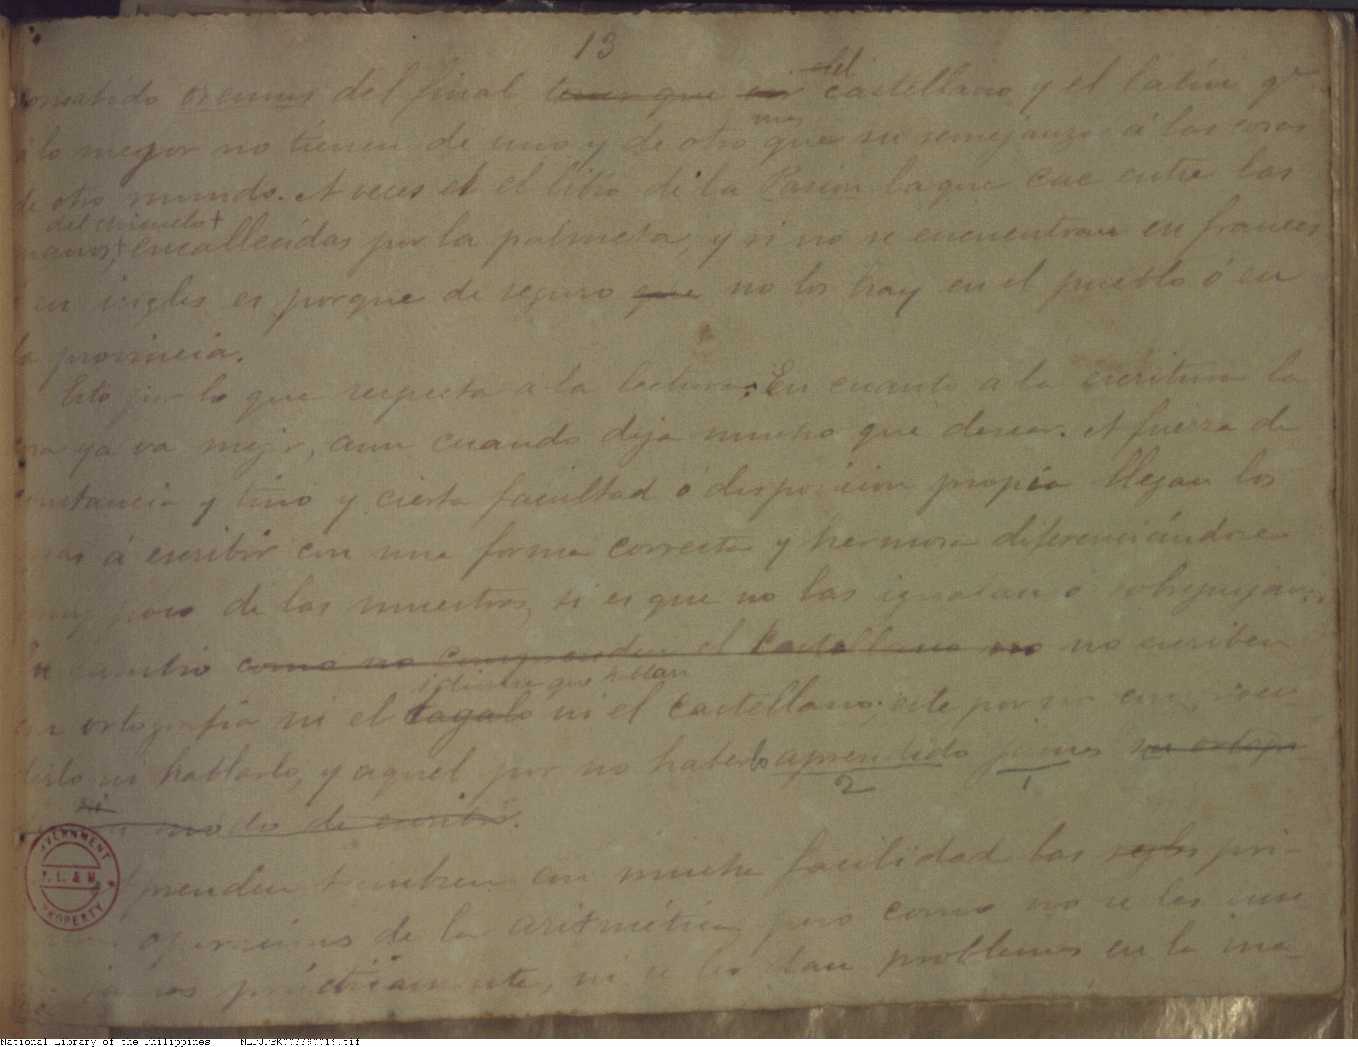 13
oremus del final tener que en del castellano y el latin qe
lo mejor no tienen de uno y de otro mas que su semejanza á las cosas
de otro mundo. A veces el libro de la Pasion la que cae entre las
manos, del chicuelo encallecidas por la palmeta, y si no se encuentran en frances
en ingles es porque de seguro que no los hay en el pueblo ó en
la provincia.
Esto por lo que respecta á la lectura; En cuanto a la escritura la
cosa ya va mejor, aun cuando deja mucho que desear. A fuerza de
constancia y tino y cierta facultad ó disposicion propia llegan los
á escribir con una forma correcta y hermosa diferenciándose
muy poco de las muestras, si es que no las igualan ó sobrepujan.
En cambio como no comprenden el Castellano no no escriben
con ortografia ni el tagalo idioma que hablan ni el Castellano; este por no
ni hablarlo, y aquel por no haberlo aprendido jamas su
2 1
ni modo de escribir.
aprenden tambien con mucha facilidad las reglas pri-
operaciones de la aritmética, pero como no se les
prácticamente, ni se les dan problemas en la
GOVERNMENT
P.L. & M.
PROPERTY
National Library of the Philippines